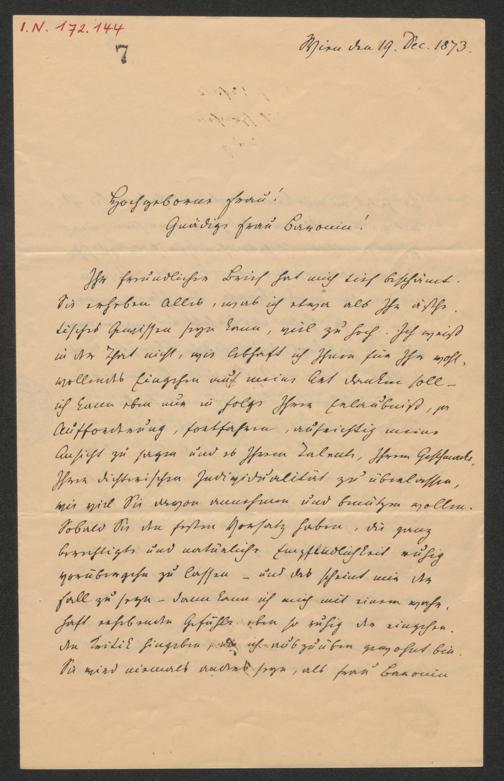 I.N. 172.144
7
Wien den 19. Dec. 1873.
Hochgeborne Frau!
Gnädige Frau Baronin!
Ihr freundlicher Brief hat mich tief beschämt.
Sie erheben Alles, was ich etwa als Ihr ästhe-
tisches Gewissen seyn kann, viel zu hoch. Ich weiß
in der That nicht, wie lebhaft ich Ihnen für Ihr wohl-
wollendes Eingehen auf meine Art danken soll –
ich kann eben nur in Folge Ihrer Erlaubniß, ja
Aufforderung, fortfahren, aufrichtig meine
Ansicht zu sagen und es Ihrem Talente, Ihrem Geschmacke,
Ihrer dichterischen Individualität zu überlassen,
wie viel Sie davon annehmen und benützen wollen.
Sobald Sie den festen Vorsatz haben, die ganz
berechtigte und natürliche Empfindlichkeit ruhig
vorübergehen zu lassen – und das scheint mir der
Fall zu seyn – dann kann ich mich mit einem wahr-
haft erhebenden Gefühle eben so ruhig der eingehen-
den Kritik hingeben, ich auszuüben gewohnt bin.
Sie wird niemals anders seyn, als Frau Baronin